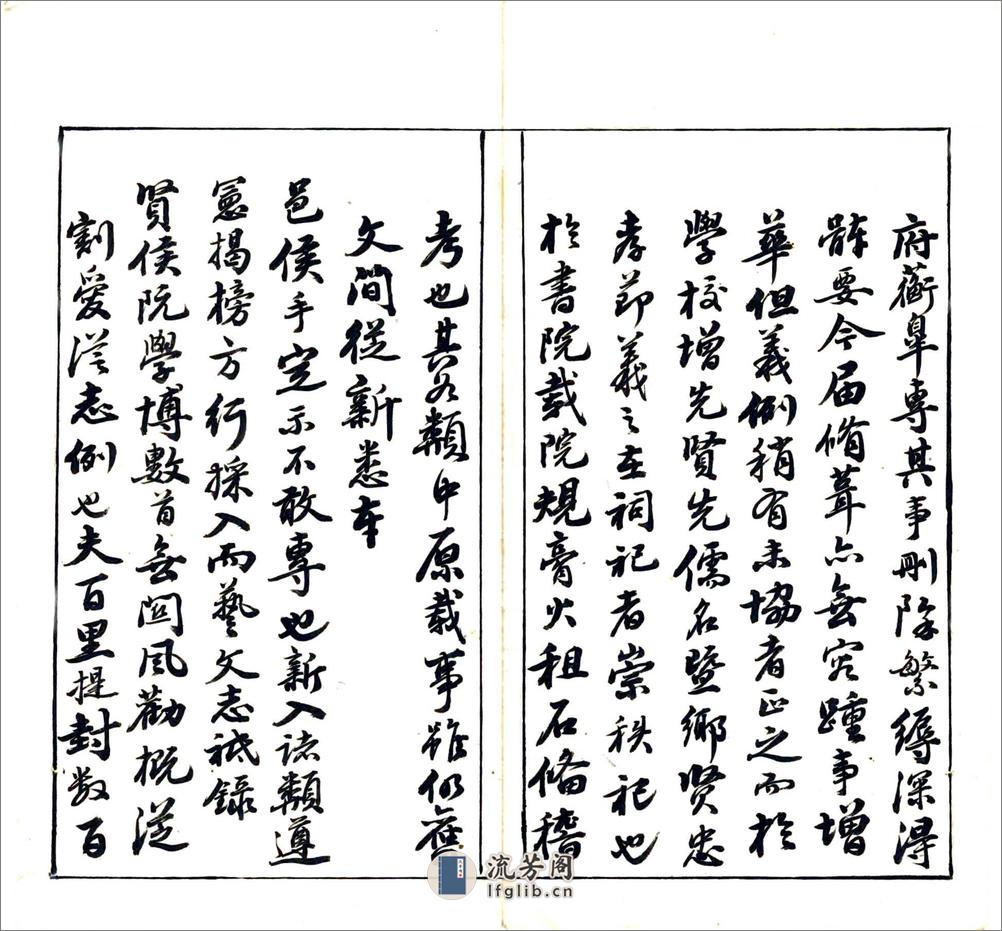 府蘅皋專其事刪除繁縟深得
體要今屆脩葺亦無容踵事增
華但義例稍有未協者正之而於
學校增先賢先儒名暨鄉賢忠
孝節義之在祠祀者崇秩祀也
於書院載院規膏火租石備稽
考也其各類中原載事雖仍舊
文間從新悉本
邑侯手定示不敢專也新入諸類遵
憲揭榜方行採入而藝文志祗錄
賢侯阮學博數首無関風勸概從
割愛從志例也夫百里提封數百
流芳阁
lfglib.cn